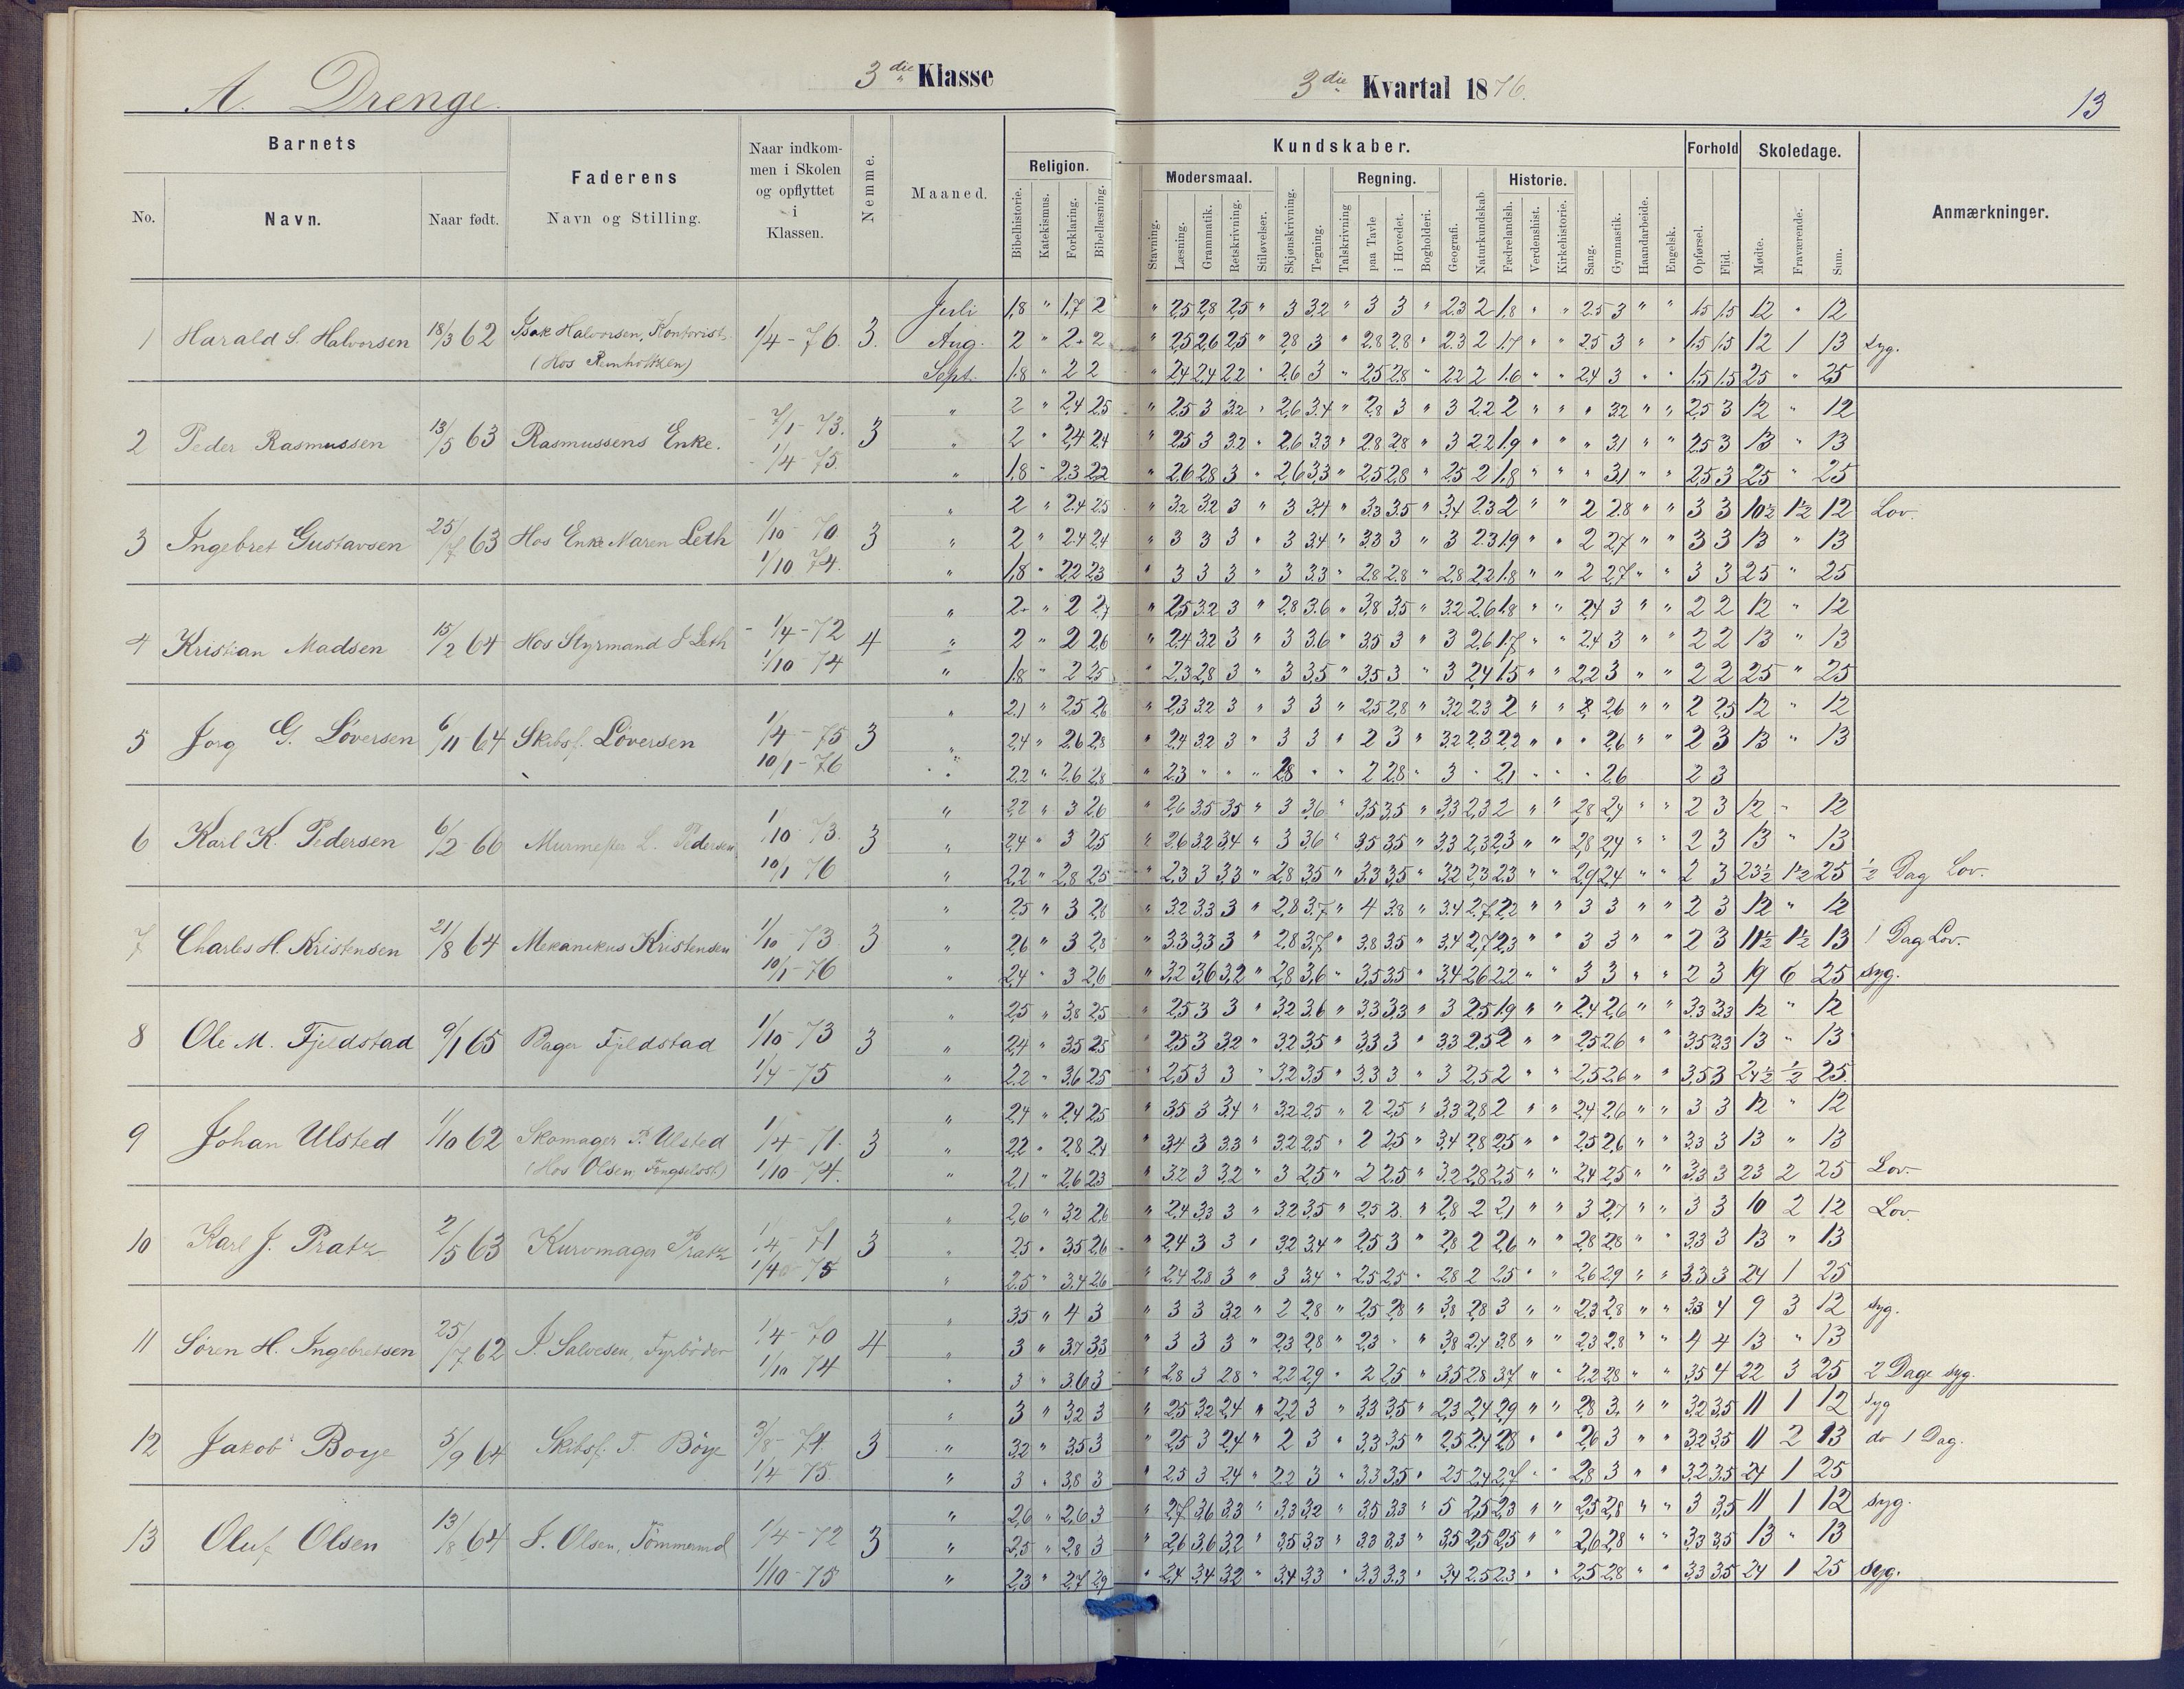 A. Drenge.
3die Klasse
3die Kvartal 1876.
13
Barnets
No.
Navn.
Naar født.
Faderens
Navn og Stilling.
Naar indkommen i Skolen og opflyttet i Klassen.
Nemme.
Maaned.
Religion.
Bibelhistorie.
Katekismus.
Forklaring.
Bibellæsning.
Kundskaber.
Modersmaal.
Stavning.
Læsning.
Grammatik.
Retskrivning.
Stiløvelser.
Skjønskrivning.
Tegning.
Regning.
Talskrivning
paa Tavle
i Hovedet.
Bogholderi.
Geografi.
Naturkundskab.
Historie.
Fædrelandsh.
Verdenshist.
Kirkehistorie.
Sang.
Gymnastik.
Haandarbeide.
Engelsk.
Forhold
Opførsel.
Flid.
Skoledage.
Mødte.
Fraværende.
Sum.
Anmærkninger.
1 Harald S. Halvorsen 18/3 62 Isak Halvorsen, Kontorist, 1/4 - 76. 3.
Juli 1,8 " 1,7 2 " 2,5 2,8 2,5 " 3 3,2 " 3 3 " 2,3 2 1,8 " " 2,5 3 " " 1,5 1,5 12 " 12
Aug. 2 " 2 2 " 2,5 2,6 2,5 " 2,8 3 " 2,8 2,8 " 2,3 2 1,7 " " 2,5 3 " " 1,5 1,5 12 1 13 Syg.
Sept. 1,8 " 2 2 " 2,4 2,4 2,2 " 2,6 3 " 2,5 2,8 " 2,2 2 1,6 " " 2,4 3 " " 1,5 1,5 25 " 25
2 Peder Rasmussen 13/5 63 Rasmussens Enke. 1/4 - 75. 3
" 2 " 2,4 2,5 " 2,5 3 3,2 " 2,6 3,4 " 2,8 3 " 3 2,2 2 " " " 3,2 " " 2,5 3 12 " 12
" 2 " 2,4 2,4 " 2,5 3 3,2 " 2,6 3,3 " 2,8 2,8 " 3 2,2 1,9 " " " 3,1 " " 2,5 3 13 " 13
" 1,8 " 2,3 2,2 " 2,6 2,8 3 " 2,6 3,3 " 2,5 2,8 " 2,5 2 1,8 " " " 3,1 " " 2,5 3 25 " 25
3 Ingebret Gustavsen 25/7 63 Hos Enke Maren Leth 1/10 - 70 1/10 74. 3
" 2 " 2,4 2,5 " 3,2 3,2 3 " 3 3,4 " 3,3 3,5 " 3,4 2,3 2 " " 2 2,8 " " 3 3 10½ 1½ 12 Lov.
" 2 " 2,4 2,4 " 3 3 3 " 3 3,4 " 3,3 3 " 3 2,3 1,9 " " 2 2,7 " " 3 3 13 " 13
" 1,8 " 2,2 2,3 " 3 3 3 " 3 3,3 " 2,8 2,8 " 2,8 2,2 1,8 " " 2 2,7 " " 3 3 25 " 25
4 Kristian Madsen 15/2 64 Hos Styrmand J Leth 1/4 - 72 1/10 - 74 4
" 2 " 2 2,7 " 2,5 3,2 3 " 2,8 3,6 " 3,8 3,5 " 3,2 2,6 1,8 " " 2,4 3 " " 2 2 12 " 12
" 2 " 2 2,6 " 2,4 3,2 3 " 3 3,6 " 3,5 3 " 3 2,6 1,7 " " 2,4 3 " " 2 2 13 " 13
" 1,8 " 2 2,5 " 2,3 2,8 3 " 3 3,5 " 3,5 3 " 3 2,4 1,5 " " 2,2 3 " " 2 2 25 " 25
5 Jørg G. Löversen 6/11 64 Skibsf. Löversen 1/4 - 75 10/1 - 76 3
" 2,1 " 2,5 2,6 " 2,3 3,2 3 " 3 3 " 2,5 2,8 " 3,2 2,3 2 " " 2,6 " " 2 2,5 12 " 12
" 2,4 " 2,6 2,8 " 2,4 3,2 3 " 3 3 " 2 3 " 3,2 2,3 2,2 " " " 2,6 " " 2 3 13 " 13
" 2,2 " 2,6 2,8 " 2,3 " " " 2,8 " " 2 2,8 " 3 " 2,1 " " " 2,6 2 3
6 Karl K. Pedersen 6/2 66 Murmester L. Pedersen 1/10 - 73. 10/1 76 3
" 2,2 " 3 2,6 " 2,6 3,5 3,5 " 3 3,6 " 3,5 3,5 " 3,3 2,3 2 " " 2,8 2,4 " " 2 3 12 " 12
" 2,4 " 3 2,5 " 2,6 3,2 3,4 " 3 3,6 " 3,5 3,5 " 3,3 2,3 2,3 " " 2,8 2,4 " " 2 3 13 " 13
" 2,2 " 2,8 2,5 " 2,3 3 3,3 " 2,8 3,5 " 3,3 3,5 " 3,2 2,3 2,3 " " 2,9 2,4 " " 2 3 23½ 1½ 25 ½ Dag Lov.
7 Charles H. Kristensen 21/8 64 Mekanikus Kristensen 1/10 - 73 10/1 - 76 3
" 2,5 " 3 2,8 " 3,2 3,3 3 " 2,8 3,7 " 4 3,8 " 3,4 2,7 2,2 " " 3 3 " " 2 3 12 " 12
" 2,6 " 3 2,8 " 3,3 3,3 3 " 2,8 3,7 " 3,8 3,5 " 3,4 2,7 2,3 " " 3 3 " " 2 3 11½ 1½ 13 1 Dag Lov.
" 2,4 " 3 2,6 " 3,2 3,6 3,2 " 2,8 3,6 " 3,5 3,5 " 3,4 2,6 2,2 " " 3 3 " " 2 3 19 6 25 syg.
8 Ole M. Fjeldstad 9/1 65 Bager Fjeldstad 1/10 - 73 1/4 - 75 3
" 2,5 " 3,8 2,5 " 2,5 3 3 " 3,2 3,6 " 3,3 3,3 " 3 2,5 1,9 " " 2,4 2,6 " " 3,3 3,3 12 " 12
" 2,4 " 3,5 2,5 " 2,5 3 3,2 " 3,2 3,5 " 3,3 3 " 3,3 2,5 2 " " 2,5 2,6 " 3,5 3,3 13 " 13
" 2,2 " 3,6 2,5 " 2,5 3 3 " 3,2 3,5 " 3,3 3 " 3 2,5 2 " " 2,5 2,6 " " 3,5 3 24½ ½ 25
9 Johan Ulsted 1/10 62 Skomager P. Ulsted 1/4 - 71. 1/10 - 74. 3
" 2,4 " 2,4 2,5 " 3,5 3 3,4 " 3,2 2,5 " 2 2,5 " 3,3 2,8 2 " " 2,4 2,6 " " 3 3 12 " 12
" 2,2 " 2,8 2,4 " 3,4 3 3,3 " 3,2 2,5 " 2 2,5 " 3,4 2,8 2,5 " " 2,5 2,6 " " 3,3 3 13 " 13
" 2,1 " 2,6 2,3 " 3,2 3 3,2 " 3 2,5 " 2 2,5 " 3,2 2,8 2,5 " " 2,4 2,5 " " 3,3 3 23 2 25 Lov.
10 Karl J. Pratz 2/5 63 Kurvmager Pratz 1/4 - 71 3
" 2,6 " 3,2 2,6 " 2,4 3,3 3 " 3,2 3,5 " 2,5 3 " 2,8 2 2,1 " " 3 2,7 " " 3 3 10 2 12 Lov.
" 2,5 " 3,5 2,6 " 2,4 3 3 " 3,2 3,4 " 2,5 3 " 2,8 2 2,6 " " 2,8 2,8 " " 3,3 3 13 " 13
" 2,5 " 3,4 2,6 " 2,4 2,8 3 " 3 3,4 " 2,5 2,5 " 2,8 2 2,5 " " 2,6 2,9 " " 3,3 3 24 1 25
11 Søren H. Ingebretsen 25/7 62 J. Salvesen, Fyrböder 1/4 - 70 1/10 74 4
" 3,5 " 4 3 " 3 3 3,2 " 2 2,8 " 2,5 2,8 " 3,8 2,8 3 " " 2,3 2,8 " " 3,3 4 9 3 12 syg.
" 3 " 3,7 3,3 " 3 3 3 " 2,3 2,8 " 2,3 " " 3,8 2,7 3,8 " " 2,3 2,8 " " 4 4 13 " 13
" 3 " 3,6 3 " 2,8 3 2,8 " 2,2 2,9 " 2 2,5 " 3,5 2,8 3,7 " " 2,2 2,8 " " 3,5 4 22 3 25 2 Dage syg.
12 Jakob Boye 5/9 64 Skibsf. T. Böye 3/8 - 74 1/4 - 75. 3
" 3 " 3,2 3 " 2,5 3,2 2,4 " 2,2 3 " 3,3 3,5 " 2,3 2,4 2,9 " " 2,8 3 " " 3,2 3,5 11 1 12 Syg
" 3,2 " 3,5 3 " 2,5 3 2,4 " 2 3 " 3,3 3,5 " 2,5 2,4 2,8 " " 2,6 3 " " 3,2 3,5 11 2 13 do 1 Dag.
" 3 " 3,8 3 " 2,5 3 2,4 " 2,2 3 " 3,3 3,5 " 2,5 2,4 2,7 " " 2,8 3 " " 3,2 3,5 24 1 25
13 Oluf Olsen 13/8 64 J. Olsen, Tömmermd 1/4 - 72 1/10 - 75 3
" 2,6 " 2,6 3 " 2,7 3,6 3,3 " 3,3 3,2 " 3,5 3,3 " 5 2,5 2,3 " " 2,5 2,8 " " 3 3,5 11 1 12 syg.
" 2,5 " 2,8 3 " 2,6 3,6 3,2 " 3,5 3,3 " 3,3 3,3 " 3,5 2,5 2,5 " " 2,6 2,8 " " 3,3 3,5 13 " 13
" 2,3 " 2,7 2,9 " 2,4 3,4 3,2 " 3,4 3,3 " 3,3 3,3 " 3,4 2,5 2,3 " " 2,5 2,8 " " 3,3 3,5 24 1 25 syg.